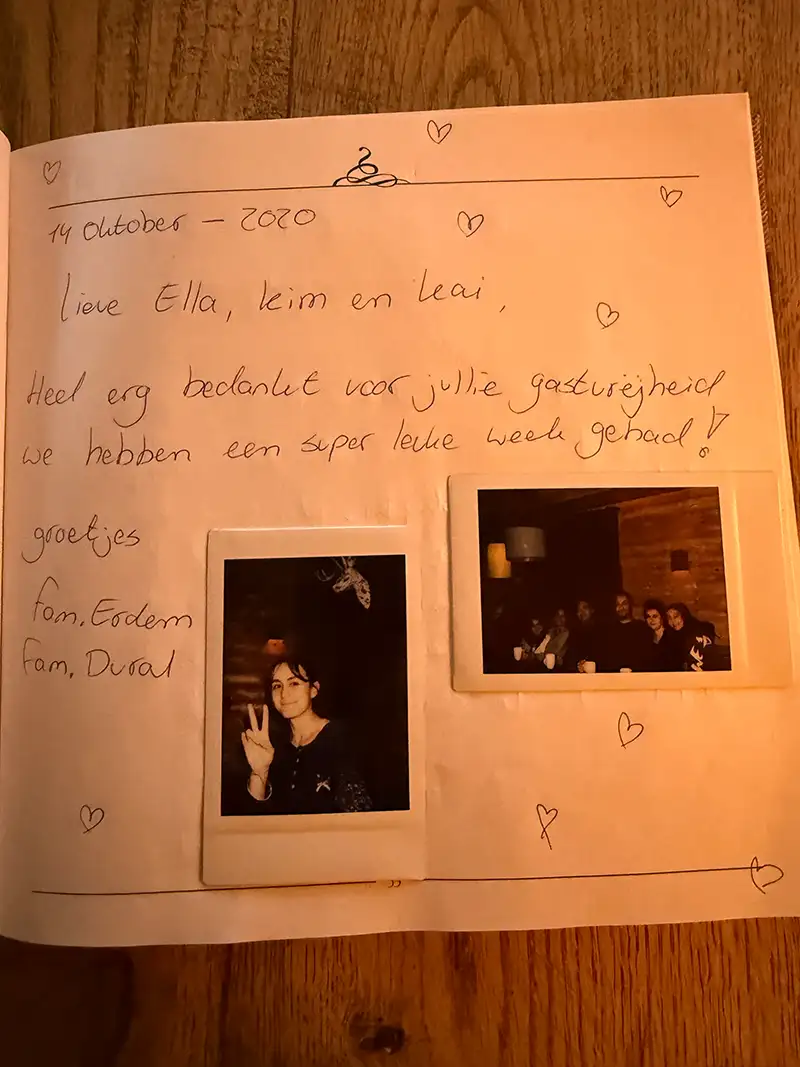 14 Oktober - 2020
Lieve Ella, Kim en Kai,
Heel erg bedankt voor jullie gastvrijheid
we hebben een super leuke week gehad!
groetjes
fam. Erdem
fam. Dural